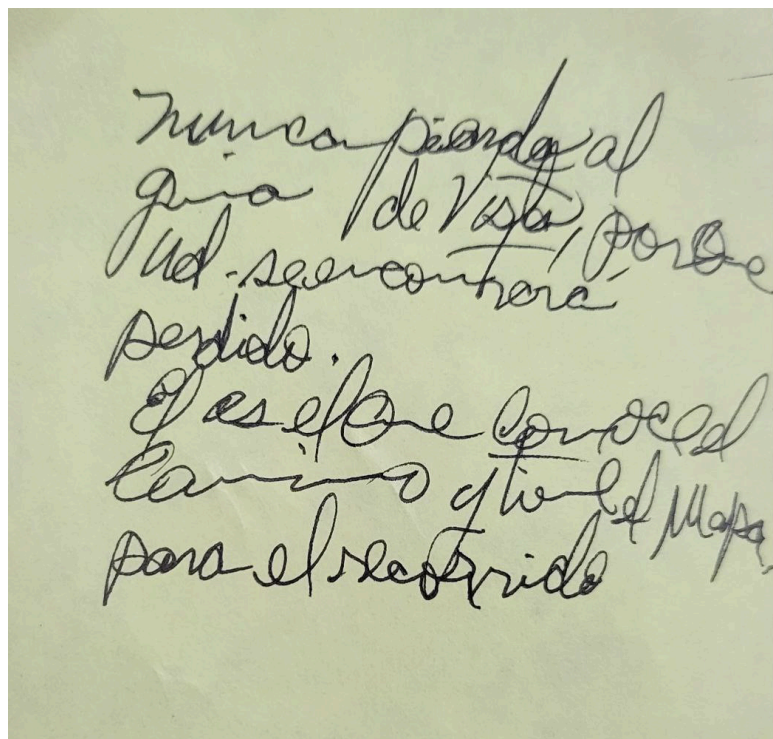 Nunca pierda al
guia de vista, porque
Ud. se encontrará
perdido.
El es el que conoce el
camino y tiene el Mapa
para el recorrido